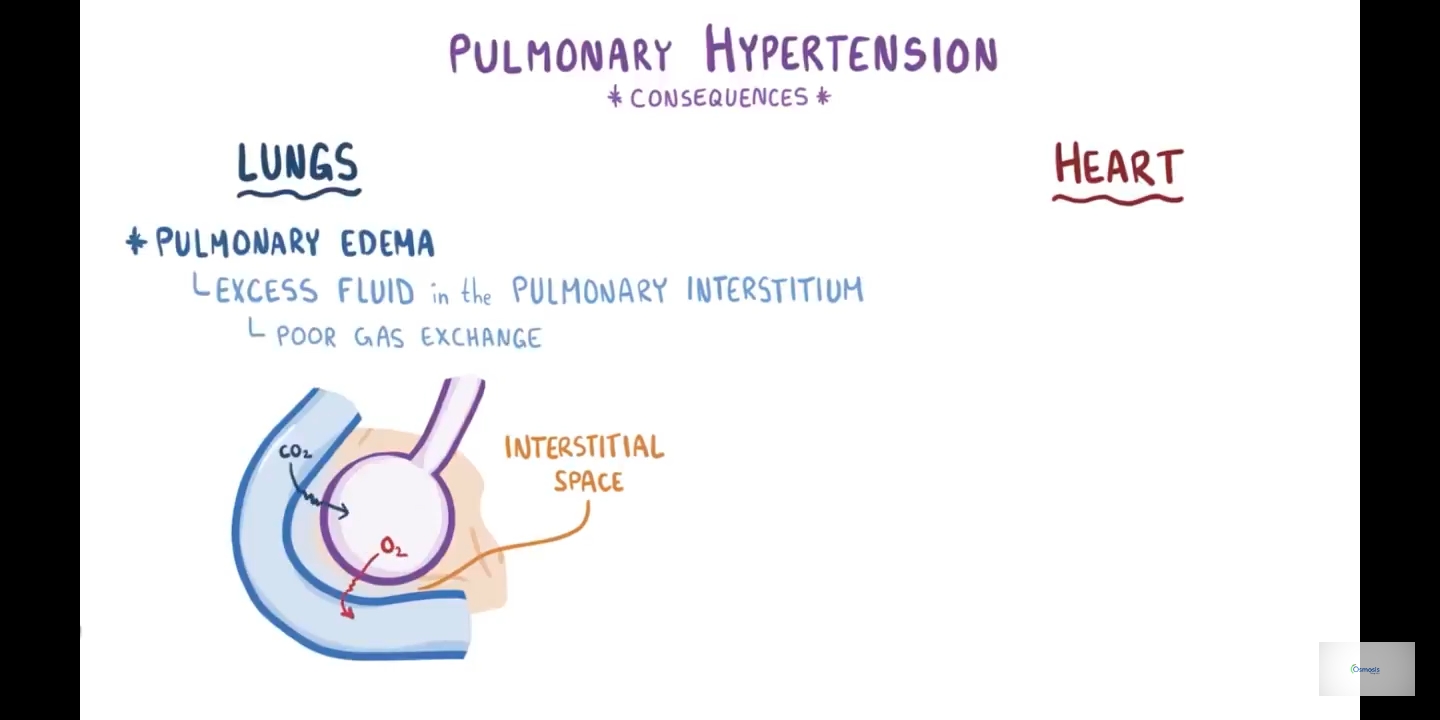 PULMONARY HYPERTENSION
* CONSEQUENCES *
LUNGS
HEART
* PULMONARY EDEMA
EXCESS FLUID in the PULMONARY INTERSTITIUM
POOR GAS EXCHANGE
CO₂
INTERSTITIAL
SPACE
O₂
Osmosis